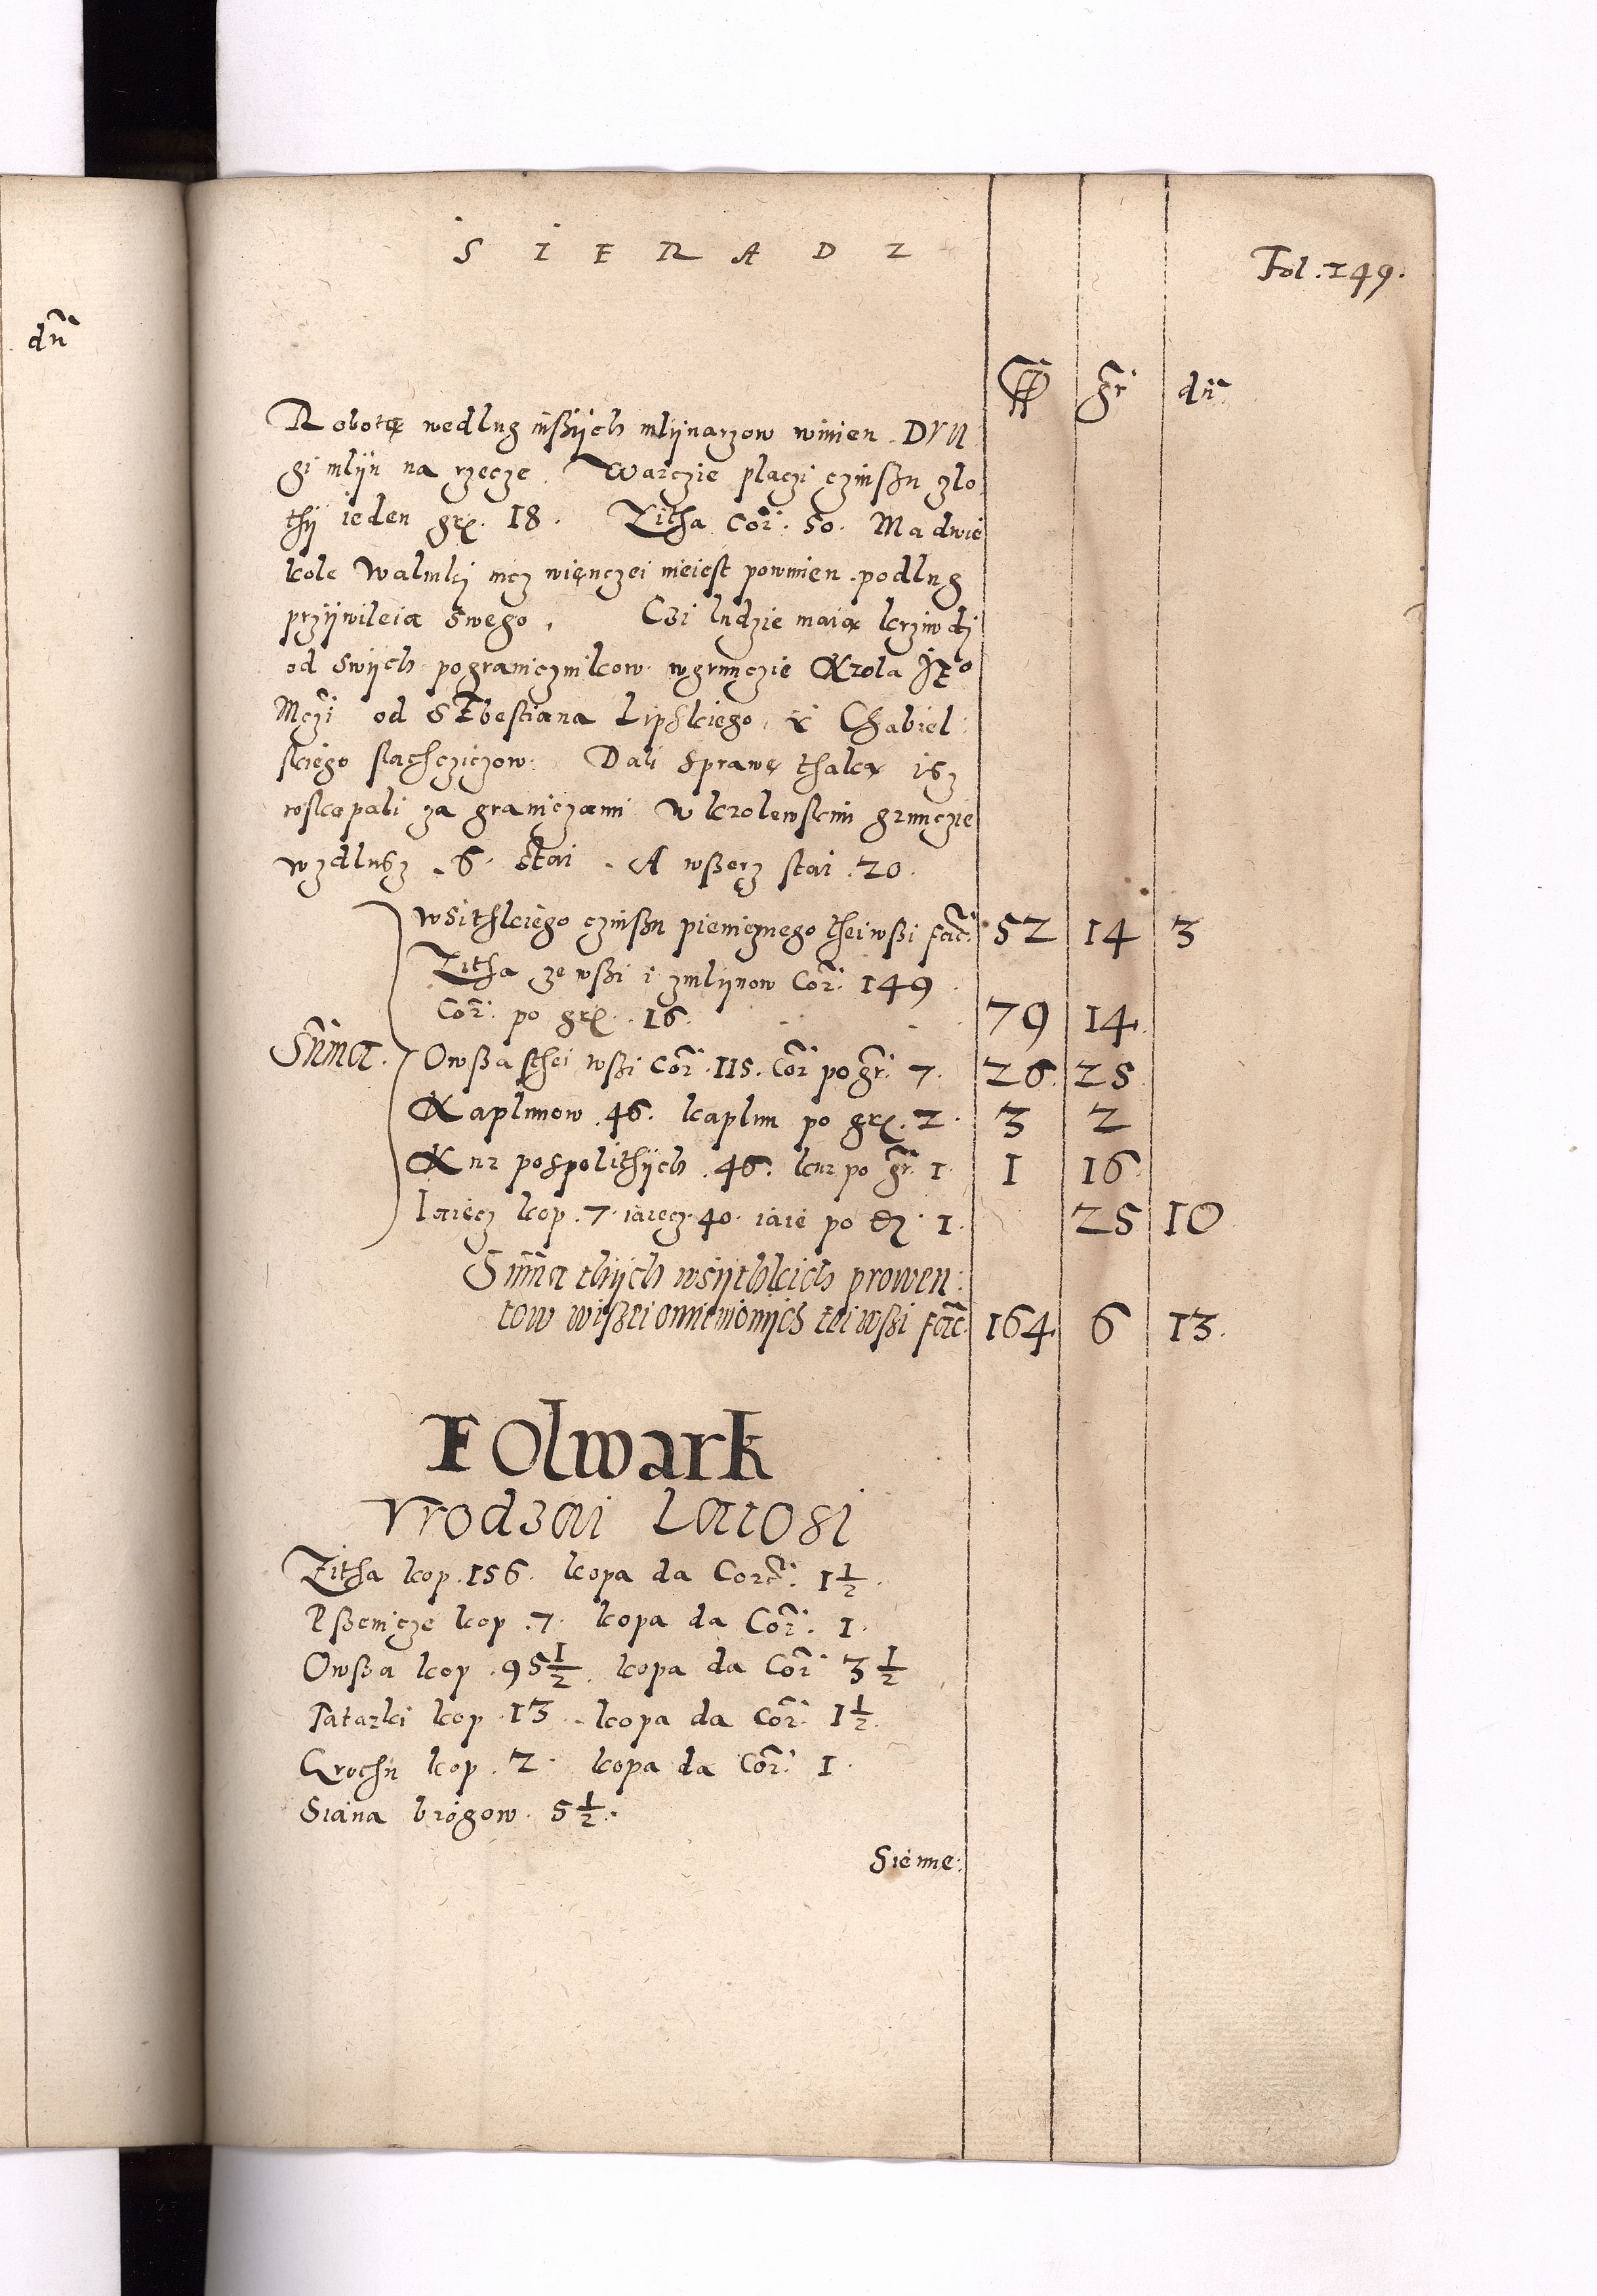 SIERADZ
Fol. 149.
dñ
fl gr dñ
Robotę wedlug inßÿch mlÿnarzow winien. Dru
gi mlÿn na rzecze Warczie placzi czinßu zlo
thÿ ieden grx. 18. Zitha Cor: 50. Ma dwie
kole Walnki nicz więnczei nieiest powinien podlug
przÿwileia swego. Czi ludzie maią krziwdÿ
od swÿch pogranicznikow wgrunczie Krola Jego
Mczi od Sebestiana Lipskiego, i Chabiel
skiego slachcziczow: Dali sprawę thaką isz
wskopali za graniczami w krolewskim grunczie
wzdlusz .6. stai . A wßerz stai .20.
Wsithkiego czinßu pienięznego theiwßi facit 52 14 3
Zitha ze wßi i zmlÿnow Cor: 149
Cor: po grx. 16. 79 14
Sum̃a. Owßa sthei wßi Cor: 115. Cor po gr: 7. 26 25
Kaplunow .46. kaplun po grx. 2. 3 2
Kur pospolithÿch .46. kur po gr: 1 1 16
Iaięcz kop .7. iaiecz 40. iaie po dz. 1. 25 10
Sum̃a thÿch wsÿthkich prowen:
tow wißei omienionÿch tei wßi facit 164 6 13.
Folwark
Vrodzai Latosi
Zitha kop .156. kopa da Cor: 1 1/2.
Pßenicze kop .7. kopa da Cor: 1.
Owßa kop .95 1/2. kopa da Cor: 3 1/2
Tatarki kop .13. kopa da Cor: 1 1/2.
Grochu kop .2. kopa da Cor: 1.
Siana brogow. 5 1/2.
Sienne: